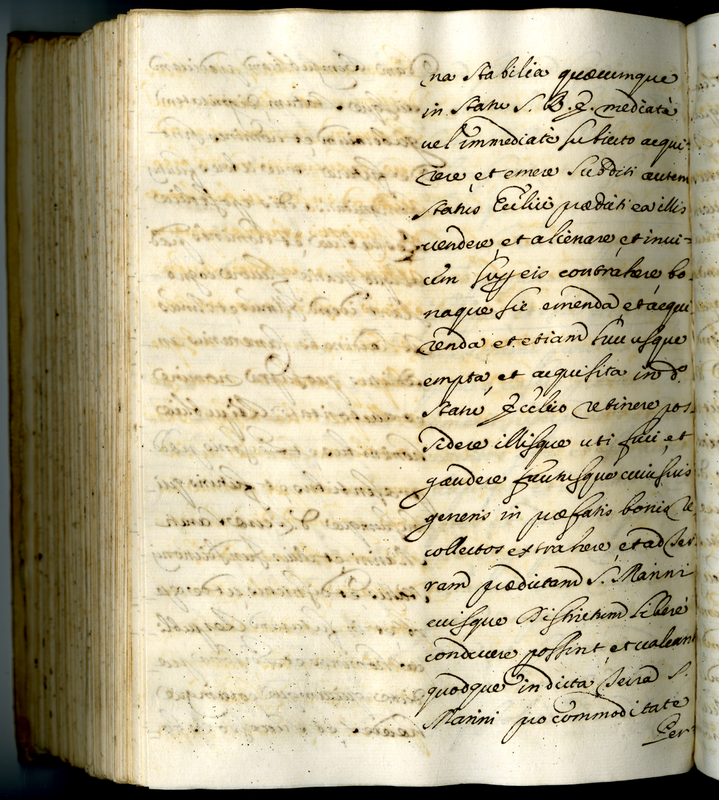 na stabilia quæcumque
in Statu S. R. E. mediatè
vel immediatè subiecto acqui-
rere et emere subditi autem
Status Eccl.ici prædicti ea illis
vendere, et alienare, et invi-
cem super eis contrahere bo-
naque sic emenda et acqui
renda et etiam huc usque
empta, et acquisita in d.o
Statu Eccl.co retinere pos
sidere illisque uti frui, et
gaudere fructusque cuiusvis
generis in præfatis bonis re
collectos extrahere, et ad Ter
ram prædictam S. Marini
eiusque Districtum liberè
conducere possint, et valeant
quodque in dicta Terra S.
Marini pro commoditate
Per